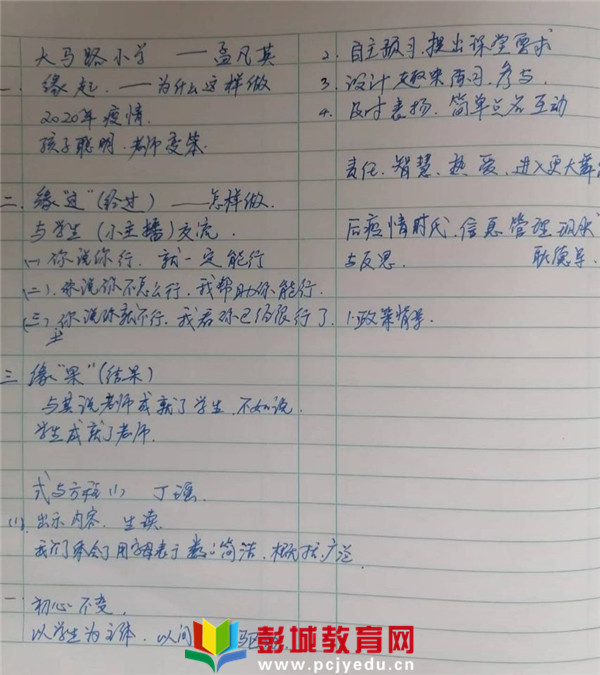 大马路小学 —— 孟凡其
一. 缘起. —— 为什么这样做
2020年疫情.
孩子聪明. 老师变笨.
二. 缘"过"(经过) —— 怎样做.
与学生 (小主播) 交流.
(一) 你说你行. 就一定能行
(二). 你说你不怎么行, 我帮助你能行.
(三). 你说你就不行. 我看你已经很行了.
三 缘"果"(结果)
与其说老师成就了学生. 不如说.
学生成就了老师.
式与方程(1) 丁
(1). 出示内容. 生读.
用字母表示数: 简洁.
一. 初心不变.
以学生为主体. 以问
2. 自主预习. 提出课堂要求
3. 设计趣味 参与.
4. 及时表扬. 简单点名互动
责任. 智慧. 热爱. 进入更大舞
后疫情时代. 信息管理现状
与反思. 耿德
1. 政策
彭城教育网
www.pcjyedu.cn